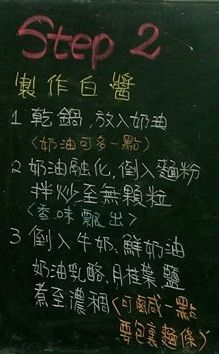 Step 2
製作白醬
1 乾鍋,放入奶油
(奶油可多一點)
2 奶油融化,倒入麵粉
拌炒至無顆粒
(香味飄出)
3 倒入牛奶、鮮奶油
奶油乳酪、月桂葉、鹽
煮至濃稠(可鹹一點
要包裹麵條)